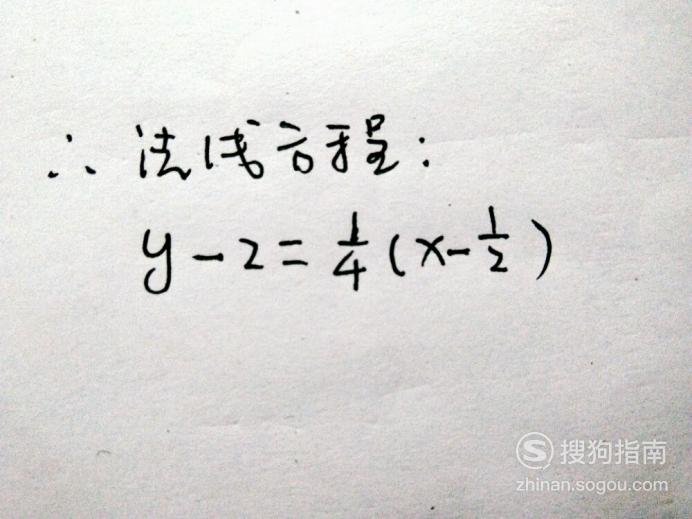 ∴ 法线方程:
y-2=1/4(x-1/2)
搜狗指南
zhinan.sogou.com